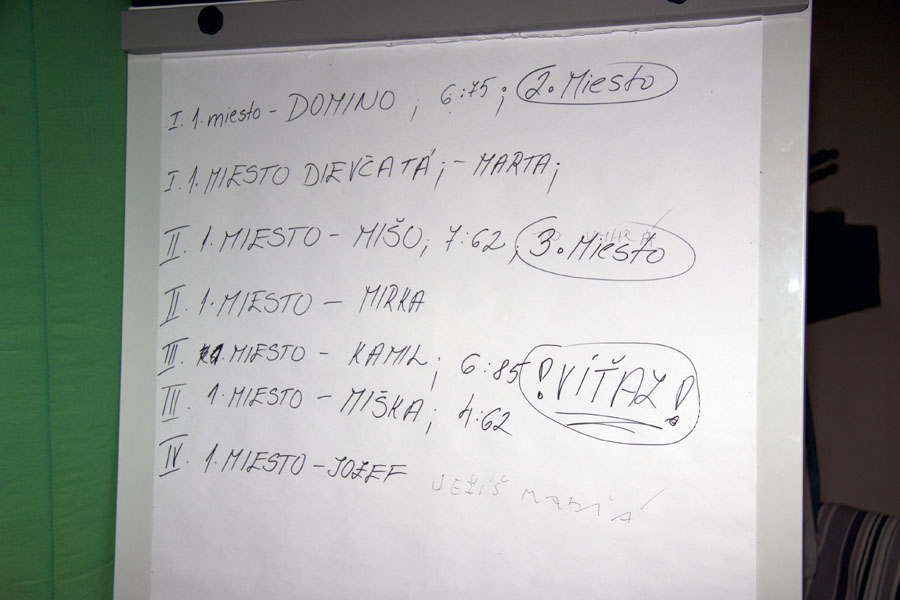 I. 1. miesto - DOMINO ; 6:75 ; 2. Miesto
I. 1. MIESTO DIEVČATÁ ; - MARTA ;
II. 1. MIESTO - MIŠO ; 7:62 ; 3. Miesto
II. 1. MIESTO - MIRKA
III. 1. MIESTO - KAMIL ; 6:85 ! VÍŤAZ !
III. 1. MIESTO - MIŠKA ; 4:62
IV. 1. MIESTO - JOZEF